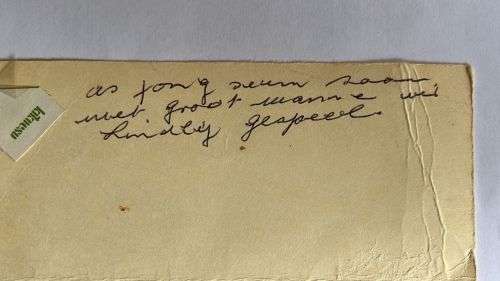 as jong seun saam
met groot manne vir
Lindley gespeel.